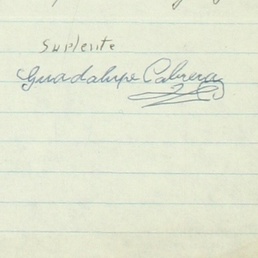 Suplente
Guadalupe Cabrera